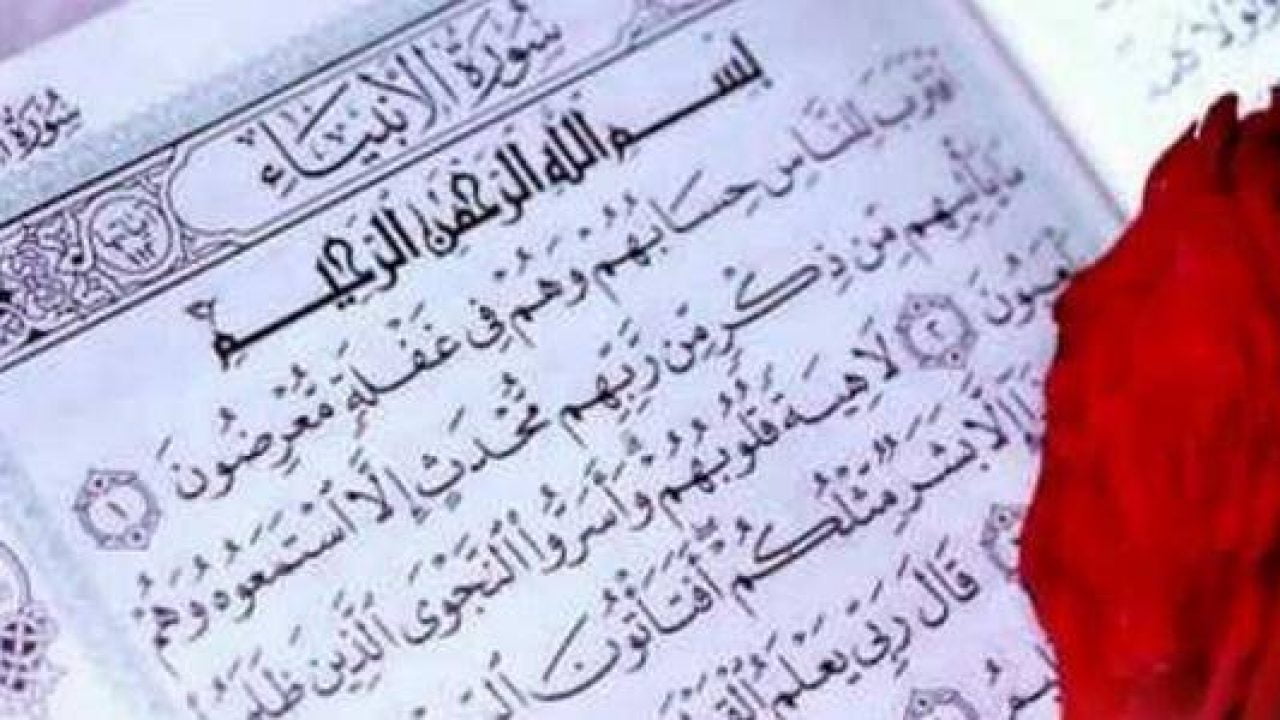 سُورَةُ الأَنبِيَاءِ
بِسْمِ اللَّهِ الرَّحْمَٰنِ الرَّحِيمِ
اقْتَرَبَ لِلنَّاسِ حِسَابُهُمْ وَهُمْ فِي غَفْلَةٍ مُّعْرِضُونَ ١
مَا يَأْتِيهِم مِّن ذِكْرٍ مِّن رَّبِّهِم مُّحْدَثٍ إِلَّا ٱسْتَمَعُوهُ وَهُمْ
لَاهِيَةً قُلُوبُهُمْ وَأَسَرُّوا ٱلنَّجْوَى ٱلَّذِينَ ٢
إِلَّا بَشَرٌ مِّثْلُكُمْ أَفَتَأْتُونَ
قَالَ رَبِّي يَعْلَمُ
سُورَةُ